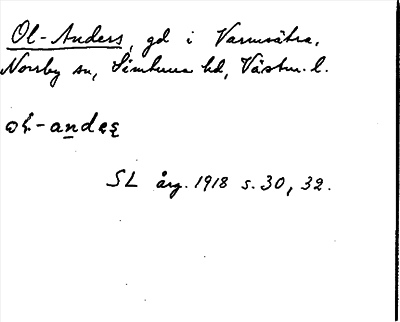 Ol-Anders, gd i Varmsätra,
Norrby sn, Simtuna hd, Västm. l.
SL årg. 1918 s. 30, 32.